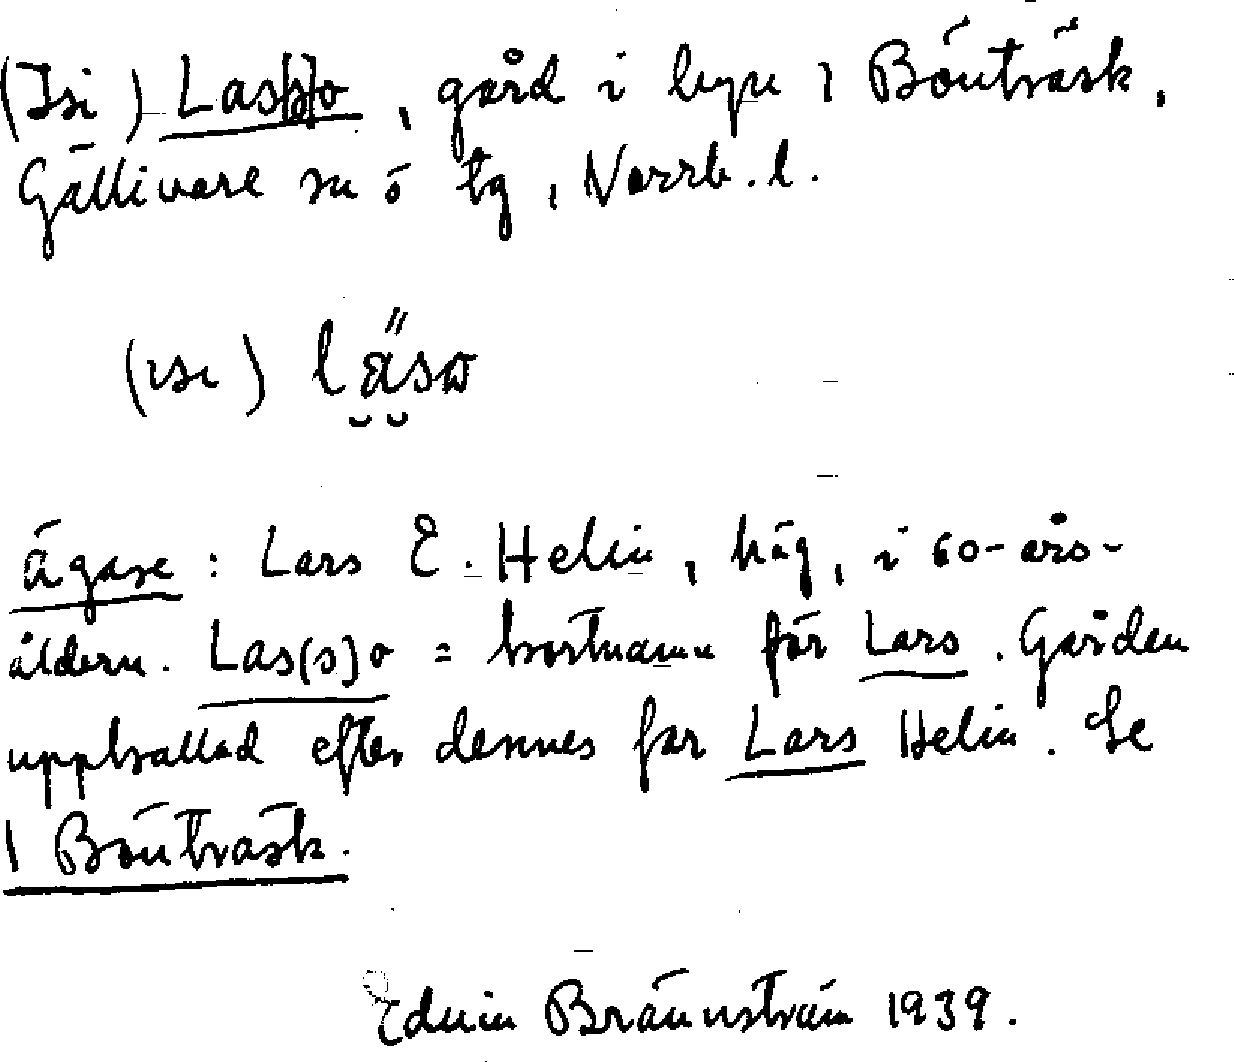 (Isi) Las(s)o, gård i byn 1 Bönträsk,
Gällivare sn o tg, Norrb. l.
(isi) läso
ägare: Lars E. Helin, häg, i 60-års-
åldern. Las(s)o = kortnamn för Lars. Gården
uppkallad efter dennes far Lars Helin. Se
1 Bönträsk.
Edvin Brännström 1939.